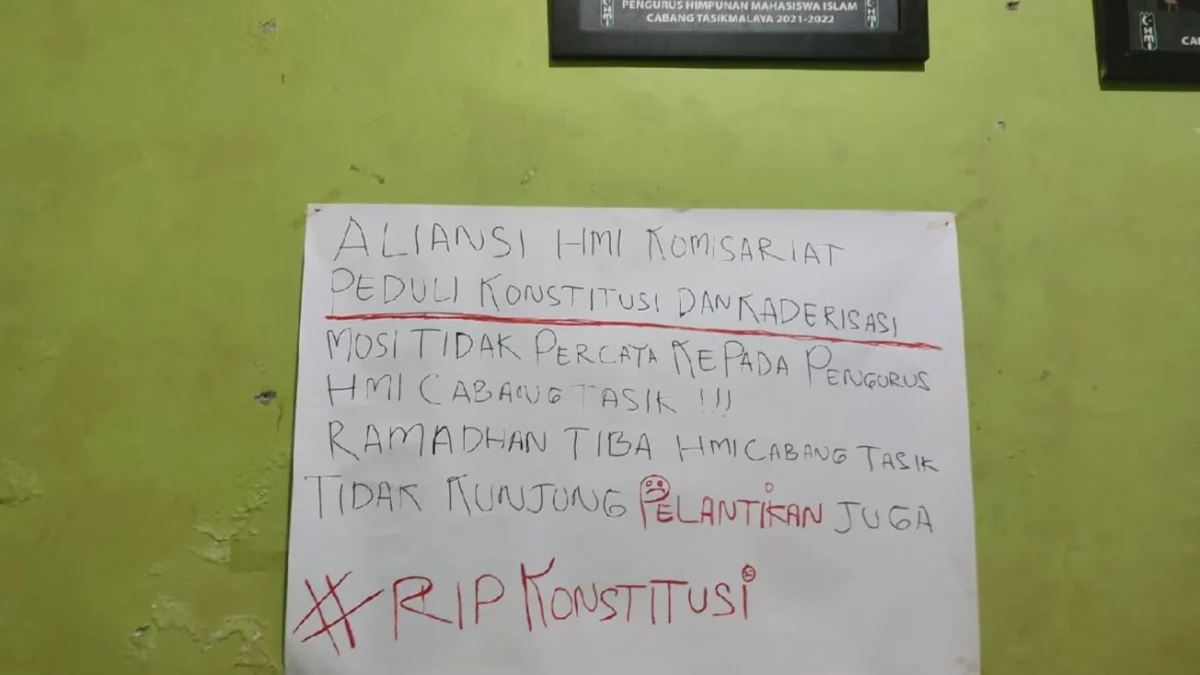 PENGURUS HIMPUNAN MAHASISWA ISLAM
CABANG TASIKMALAYA 2021-2022
HMI
HMI
HMI
CA
ALIANSI HMI KOMISARIAT
PEDULI KONSTITUSI DAN KADERISASI
MOSI TIDAK PERCAYA KEPADA PENGURUS
HMI CABANG TASIK !!!
RAMADHAN TIBA HMI CABANG TASIK
TIDAK KUNJUNG PELANTIKAN JUGA
#RIP KONSTITUSI